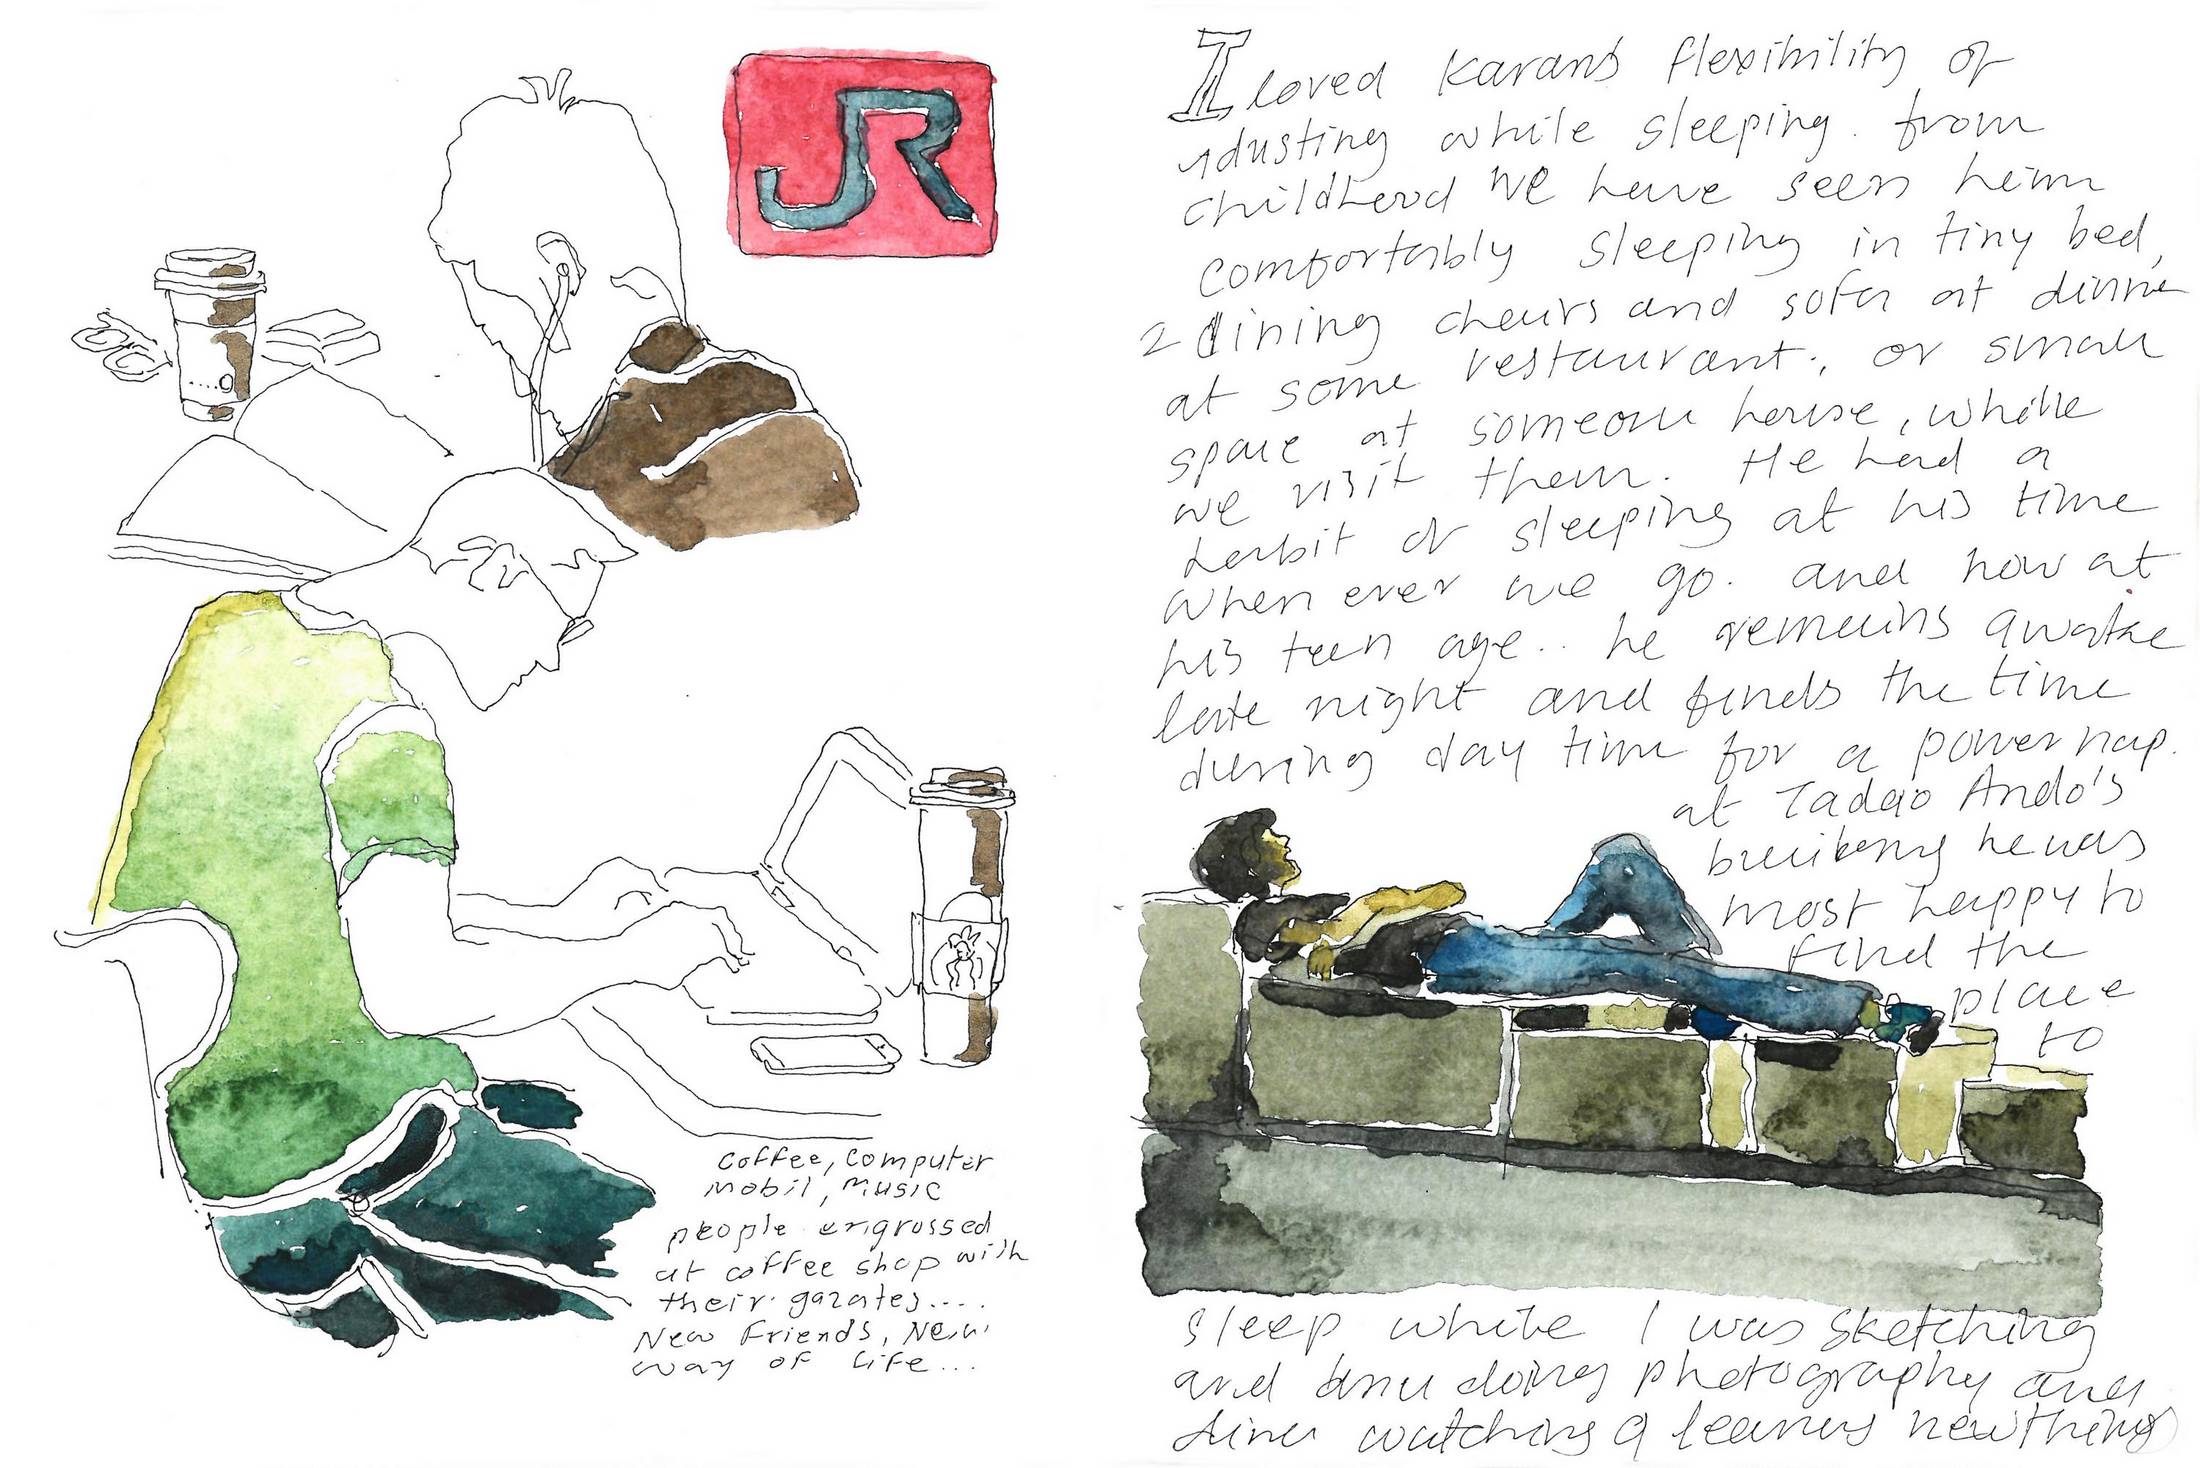 JR
coffee, computer
mobil, music
people engrossed
at coffee shop with
their gazates....
New Friends, New
way of life...
I loved Karan's flexibility of
adusting while sleeping. from
childhood we have seen heim
comfortably sleeping in tiny bed,
2 dining chairs and sofa at dinne
at some restaurant, or small
space at someone house, while
we visit them. He had a
habit of sleeping at his time
when ever we go. and now at
his teen age.. he remains awake
late night and finds the time
during day time for a power nap.
at Tadao Ando's
building he was
most happy to
find the
place
to
sleep while I was sketching
and doing photography and
watching & learning new things